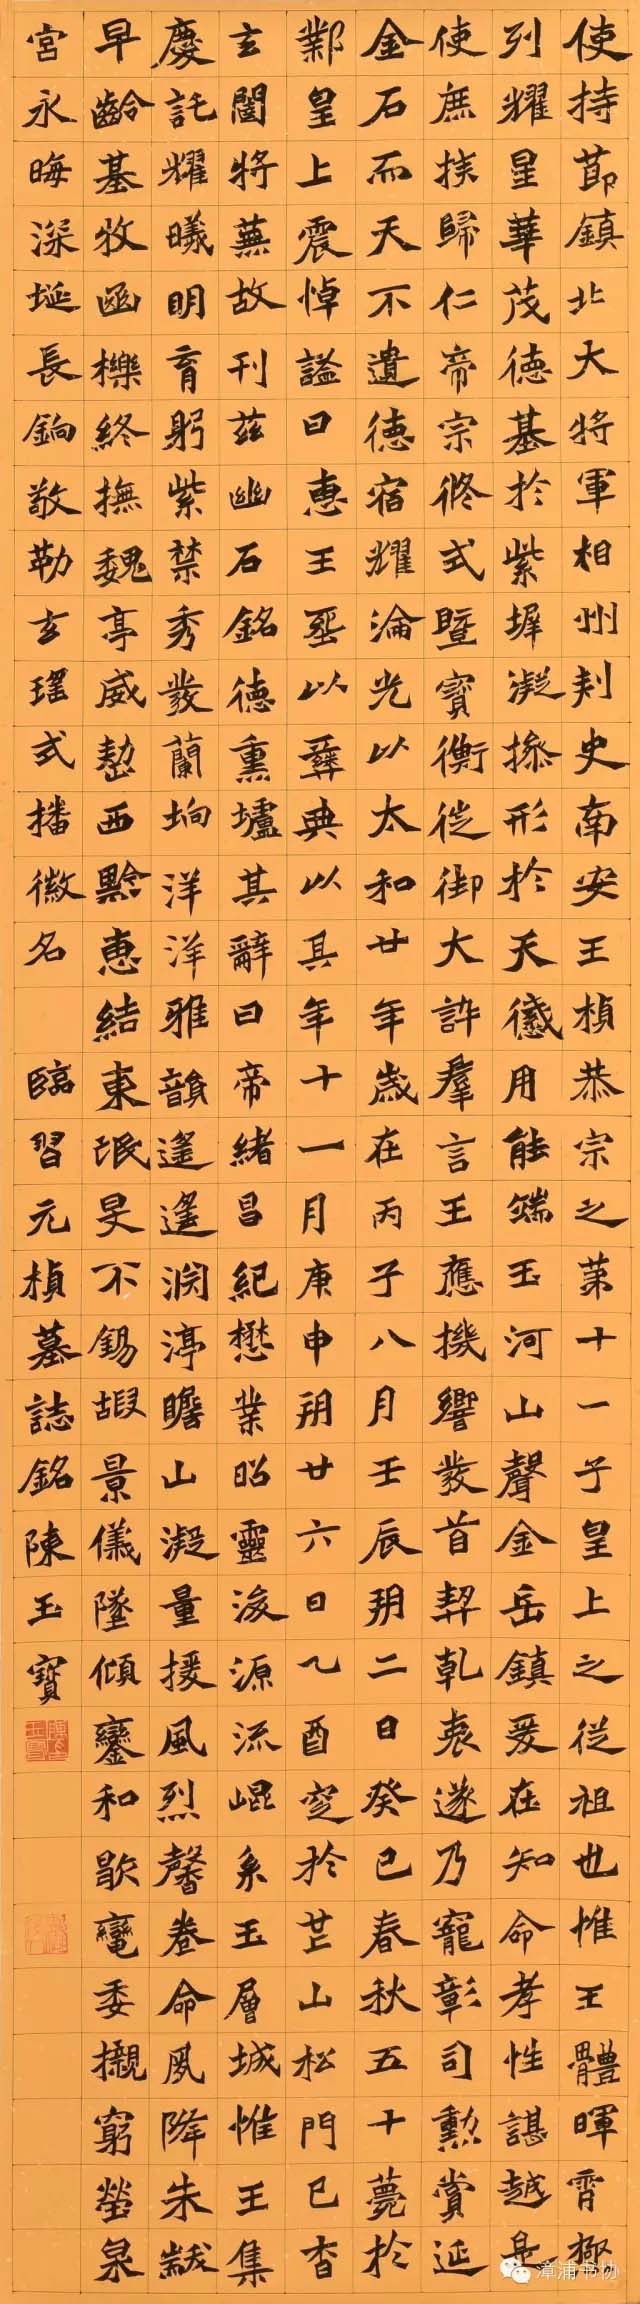 使持節鎮北大將軍相州刾史南安王楨恭宗之第十一子皇上之從祖也惟王體暉霄極
列耀星華茂德基於紫墀凝操形於天儀用能端玉河山聲金岳鎮爰在知命孝性諶越是
使庶族歸仁帝宗攸式暨寶衡徙御大訏羣言王應機響發首契乾衷遂乃寵彰司勳賞延
金石而天不遺德宿耀淪光以太和廿年歲在丙子八月壬辰朔二日癸巳春秋五十薨於
鄴皇上震悼諡曰惠王葬以彝典以其年十一月庚申朔廿六日乙酉窆於芒山松門已杳
玄闥將蕪故刊茲幽石銘德熏壚其辭曰帝緒昌紀懋業昭靈浚源流崐系玉層城惟王集
慶託耀曦明育躬紫禁秀發蘭坰洋洋雅韻遙遙淵渟瞻山凝量援風烈馨卷命夙降朱黻
早齡基牧函櫟終撫魏亭威懿西黔惠結東氓旻不錫嘏景儀墜傾鑾和歇鸞委櫬窮塋泉
宮永晦深埏長鋿敬勒玄瑤式播徽名 臨習元楨墓誌銘陳玉寶
漳浦书协